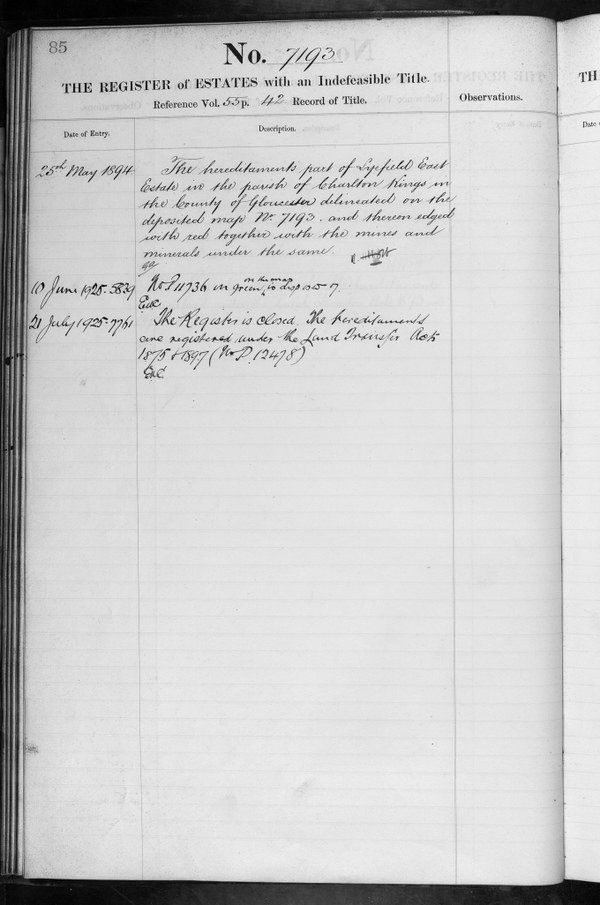 85
No. 7193
THE REGISTER of ESTATES with an Indefeasible Title.
Reference Vol. 55 p. 42 Record of Title.
Observations.
Date of Entry.
Description.
25th May 1894
The hereditaments part of Lyefield East
Estate in the parish of Charlton Kings in
the County of Gloucester delineated on the
deposited map No. 7193. and thereon edged
with red together with the mines and
minerals under the same.
10 June 1925. 5839
No P 11736 in green on the map is disposed of
21 July 1925. 7761
The Register is closed. The hereditaments
are registered under the Land Transfer Acts
1875 & 1897 (No P. 12478)
TH
Date